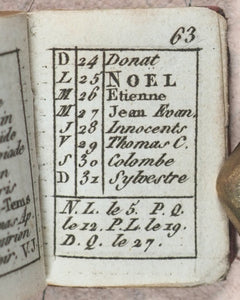 63
D 24 Donat
L 25 NOEL
M 26 Etienne
M 27 Jean Evan.
J 28 Innocents
V 29 Thomas C.
S 30 Colombe
D 31 Sylvestre
N. L. le 5. P. Q.
le 12. P. L. le 19.
D. Q. le 27.
in
ide
nade
in
ris
-Tems
as Ap.
V.J.